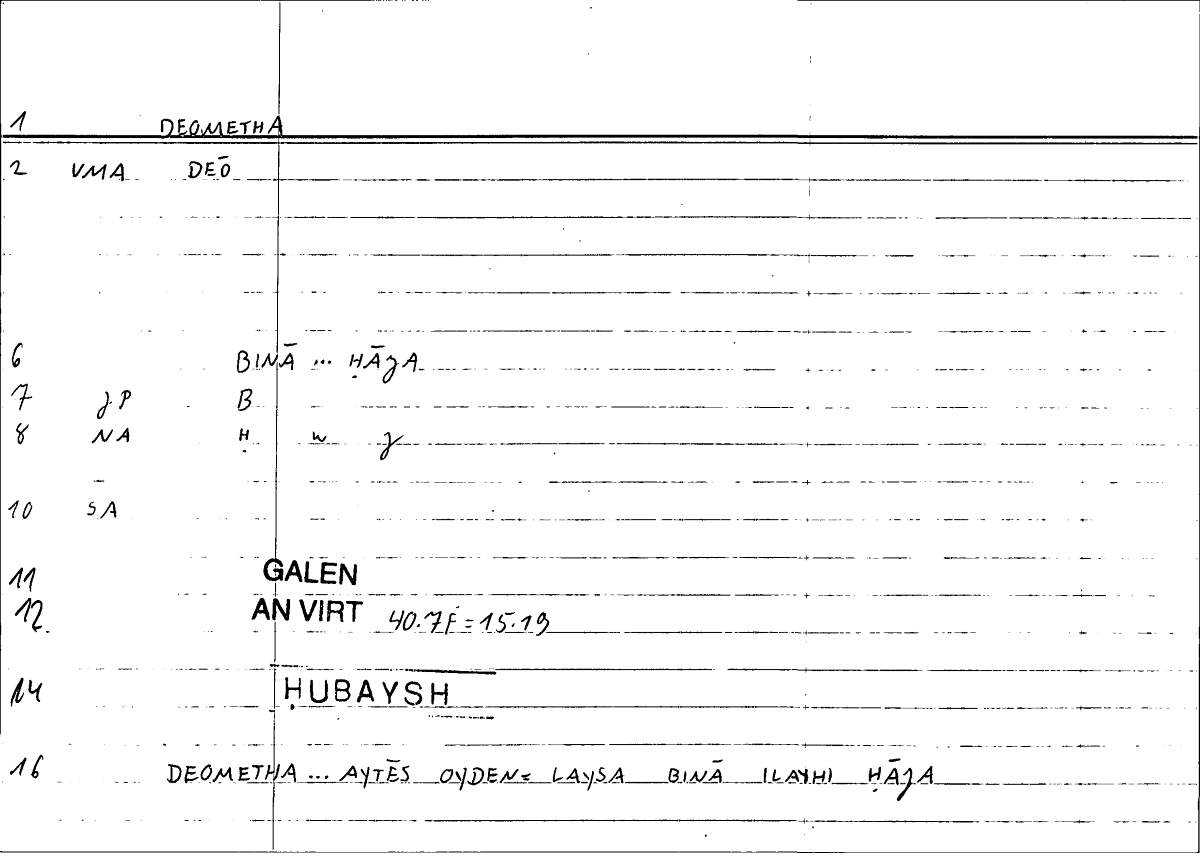 1 DEOMETHA
2 VMA DEŌ
6 BINĀ ... ḤĀJA
7 JP B
8 NA Ḥ W J
–
10 SA
11 GALEN
12 AN VIRT 40.7F = 15.19
14 ḤUBAYSH
16 DEOMETHA ... AYTĒS OYDEN = LAYSA BINĀ ILAYHI ḤĀJA